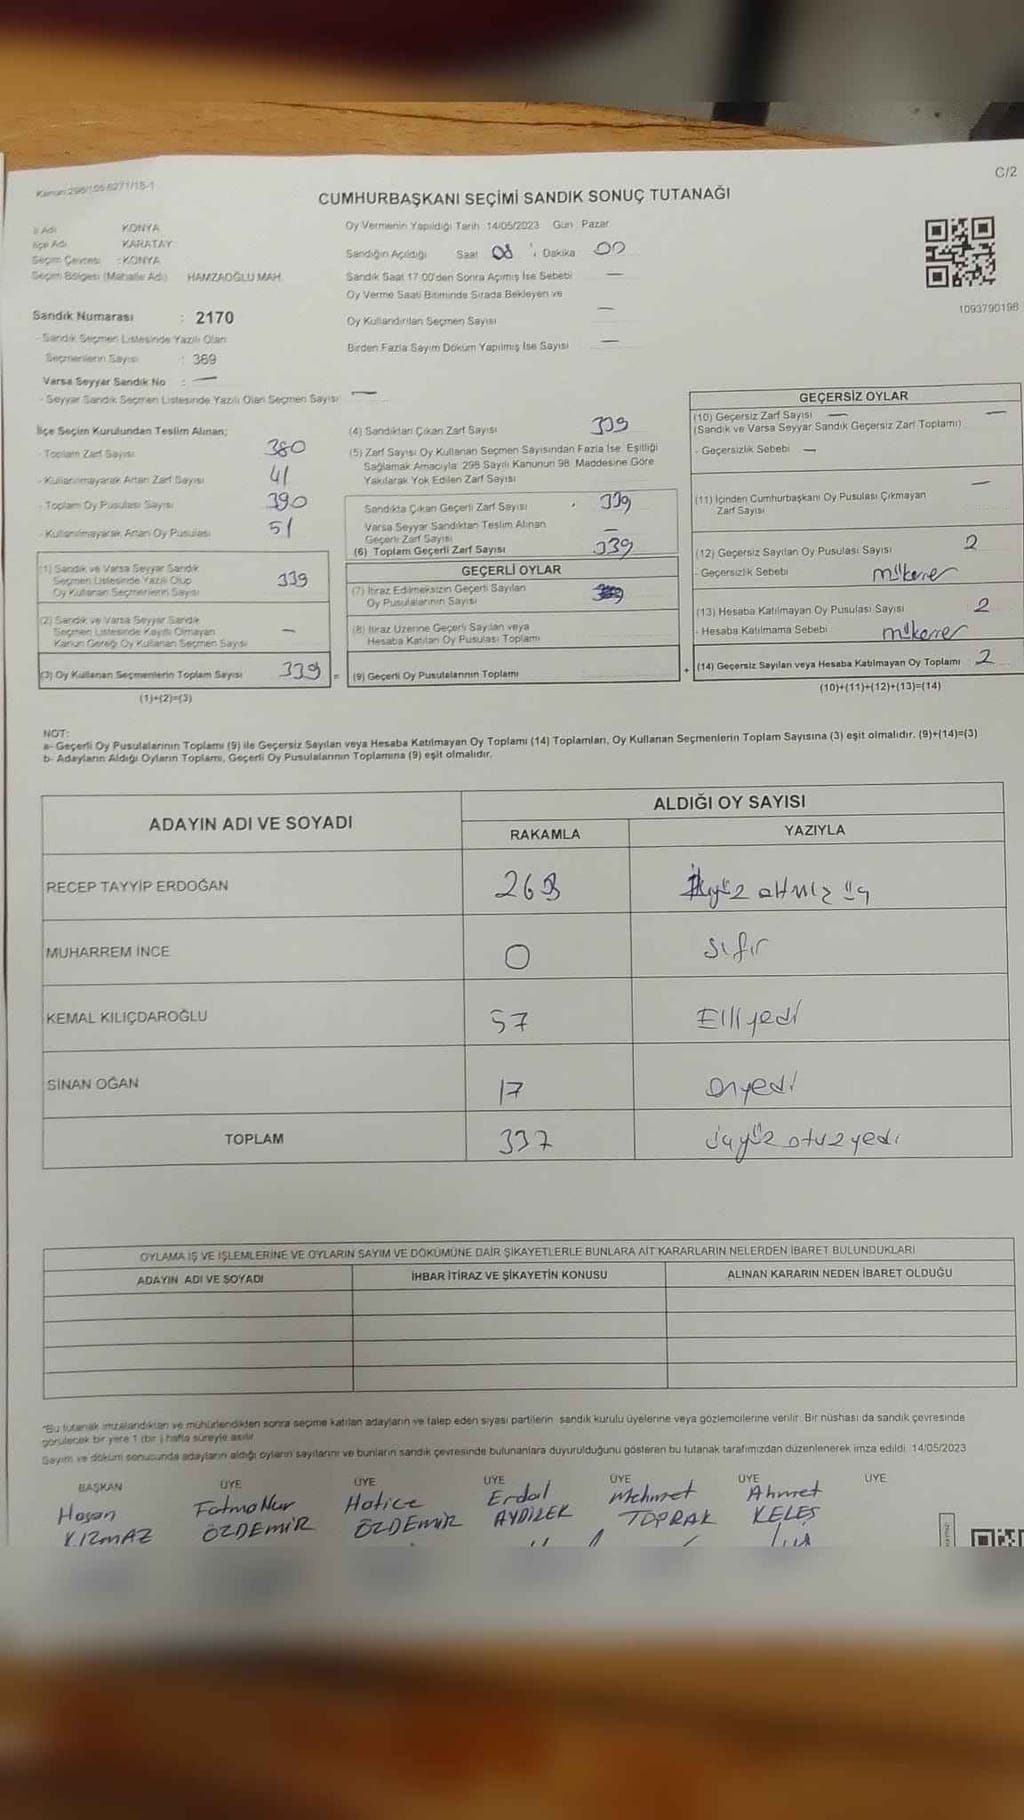 Kanun:298/105 6271/18-1
C/2
CUMHURBAŞKANI SEÇİMİ SANDIK SONUÇ TUTANAĞI
İl Adı KONYA
İlçe Adı KARATAY
Seçim Çevresi : KONYA
Seçim Bölgesi (Mahalle Adı) HAMZAOĞLU MAH.
Sandık Numarası : 2170
- Sandık Seçmen Listesinde Yazılı Olan
Seçmenlerin Sayısı : 369
Varsa Seyyar Sandık No : —
- Seyyar Sandık Seçmen Listesinde Yazılı Olan Seçmen Sayısı —
Oy Vermenin Yapıldığı Tarih :14/05/2023 Gün : Pazar
Sandığın Açıldığı Saat 08 Dakika 00
Sandık Saat 17:00'den Sonra Açımış İse Sebebi —
Oy Verme Saati Bitiminde Sırada Bekleyen ve
Oy Kullandırılan Seçmen Sayısı —
Birden Fazla Sayım Döküm Yapılmış İse Sayısı —
1093790198
İlçe Seçim Kurulundan Teslim Alınan;
- Toplam Zarf Sayısı 380
- Kullanılmayarak Artan Zarf Sayısı 41
- Toplam Oy Pusulası Sayısı 390
- Kullanılmayarak Artan Oy Pusulası 51
(1) Sandık ve Varsa Seyyar Sandık
Seçmen Listesinde Yazılı Olup
Oy Kullanan Seçmenlerin Sayısı 339
(2) Sandık ve Varsa Seyyar Sandık
Seçmen Listesinde Kayıtlı Olmayan
Kanun Gereği Oy Kullanan Seçmen Sayısı —
(3) Oy Kullanan Seçmenlerin Toplam Sayısı 339 =
(1)+(2)=(3)
(4) Sandıktan Çıkan Zarf Sayısı 339
(5) Zarf Sayısı Oy Kullanan Seçmen Sayısından Fazla İse, Eşitliği
Sağlamak Amacıyla 298 Sayılı Kanunun 98. Maddesine Göre
Yakılarak Yok Edilen Zarf Sayısı
Sandıkta Çıkan Geçerli Zarf Sayısı 339
Varsa Seyyar Sandıktan Teslim Alınan
Geçerli Zarf Sayısı —
(6) Toplam Geçerli Zarf Sayısı 339
GEÇERLİ OYLAR
(7) İtiraz Edilmeksizin Geçerli Sayılan
Oy Pusulalarının Sayısı
(8) İtiraz Üzerine Geçerli Sayılan veya
Hesaba Katılan Oy Pusulası Toplamı
(9) Geçerli Oy Pusulalarının Toplamı +
GEÇERSİZ OYLAR
(10) Geçersiz Zarf Sayısı — —
(Sandık ve Varsa Seyyar Sandık Geçersiz Zarf Toplamı)
- Geçersizlik Sebebi —
(11) İçinden Cumhurbaşkanı Oy Pusulası Çıkmayan —
Zarf Sayısı
(12) Geçersiz Sayılan Oy Pusulası Sayısı 2
- Geçersizlik Sebebi mükerrer
(13) Hesaba Katılmayan Oy Pusulası Sayısı 2
- Hesaba Katılmama Sebebi mükerrer
(14) Geçersiz Sayılan veya Hesaba Katılmayan Oy Toplamı 2
(10)+(11)+(12)+(13)=(14)
NOT:
a- Geçerli Oy Pusulalarının Toplamı (9) ile Geçersiz Sayılan veya Hesaba Katılmayan Oy Toplamı (14) Toplamları, Oy Kullanan Seçmenlerin Toplam Sayısına (3) eşit olmalıdır. (9)+(14)=(3)
b- Adayların Aldığı Oyların Toplamı, Geçerli Oy Pusulalarının Toplamına (9) eşit olmalıdır.
ADAYIN ADI VE SOYADI
ALDIĞI OY SAYISI
RAKAMLA YAZIYLA
RECEP TAYYİP ERDOĞAN 263 İkiyüz altmış üç
MUHARREM İNCE 0 sıfır
KEMAL KILIÇDAROĞLU 57 Elliyedi
SİNAN OĞAN 17 onyedi
TOPLAM 337 üçyüz otuzyedi
OYLAMA İŞ VE İŞLEMLERİNE VE OYLARIN SAYIM VE DÖKÜMÜNE DAİR ŞİKAYETLERLE BUNLARA AİT KARARLARIN NELERDEN İBARET BULUNDUKLARI
ADAYIN ADI VE SOYADI İHBAR İTİRAZ VE ŞİKAYETİN KONUSU ALINAN KARARIN NEDEN İBARET OLDUĞU
*Bu tutanak imzalandıktan ve mühürlendikten sonra seçime katılan adayların ve talep eden siyasi partilerin sandık kurulu üyelerine veya gözlemcilerine verilir. Bir nüshası da sandık çevresinde
görülecek bir yere 1 (bir ) hafta süreyle asılır
Sayım ve döküm sonucunda adayların aldığı oyların sayılarını ve bunların sandık çevresinde bulunanlara duyurulduğunu gösteren bu tutanak tarafımızdan düzenlenerek imza edildi. 14/05/2023
BAŞKAN ÜYE ÜYE ÜYE ÜYE ÜYE ÜYE
Hasan Fatma Nur Hatice Erdal Mehmet Ahmet
KIZMAZ ÖZDEMİR ÖZDEMİR AYDİLEK TOPRAK KELEŞ